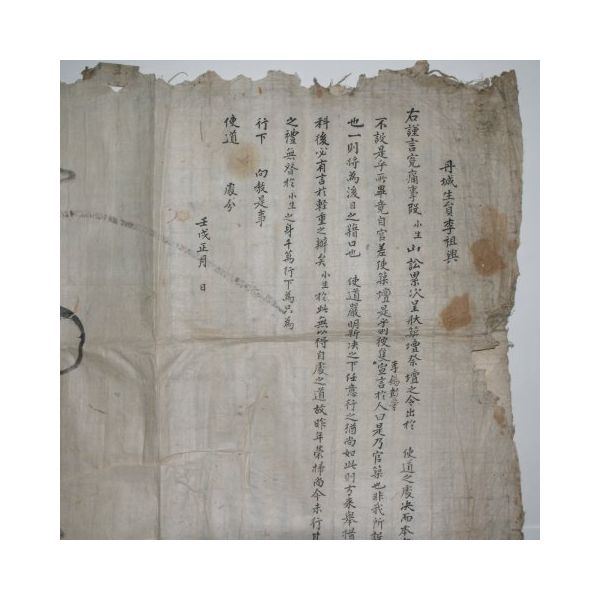 丹城生員李祖興
右謹言寃痛事段小生山訟累次呈狀築壇祭壇之令出於 使道之處決而本
不設是乎所畢竟自官差使築壇是乎則彼隻宣言於人曰是乃官築也非我所設
也一則將爲後日之藉口也 使道嚴明斷決之下任意行之猶尚如此則方來擧措
科後必有言於輕重之辨矣小生於此無以得自處之道故昨年榮掃尚今未行
之禮無替於小生之身千萬行下爲只爲
行下 向敎是事
使道 處分
壬戌正月 日